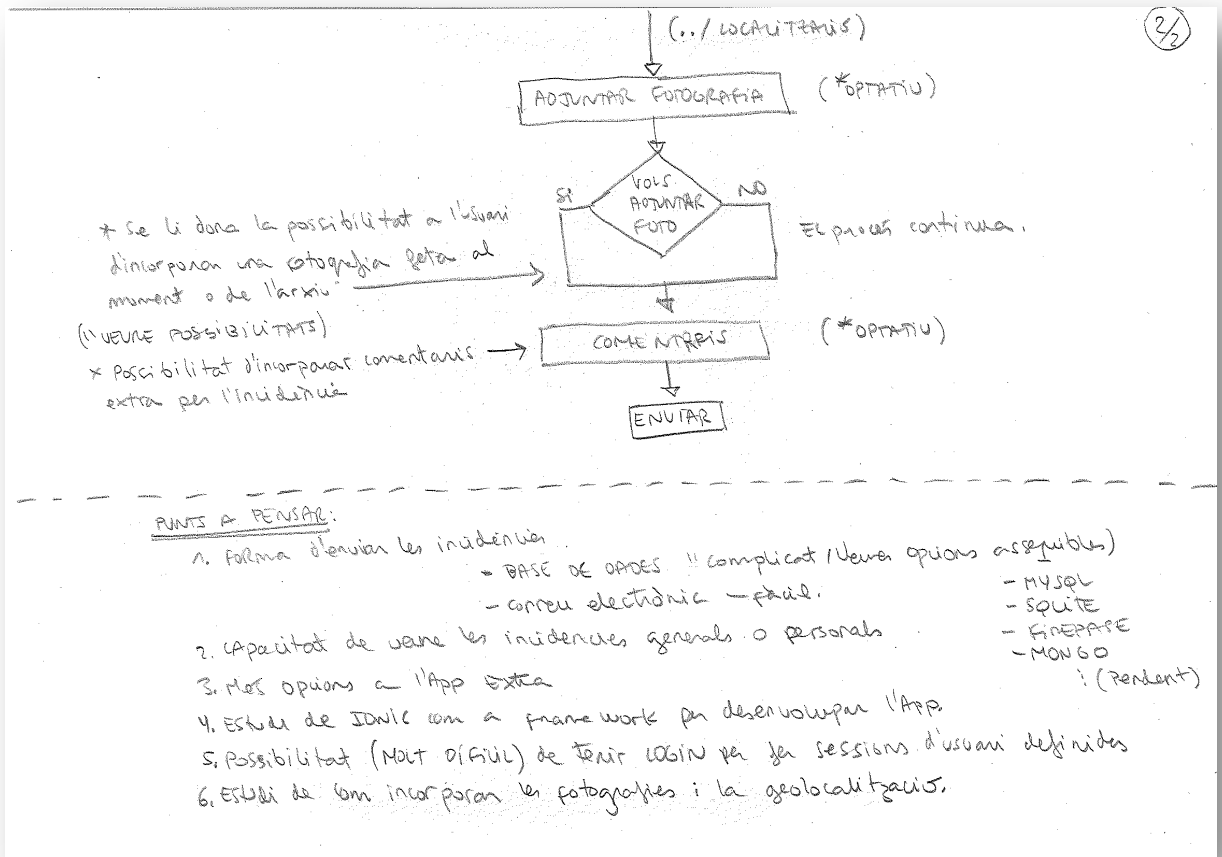 (../ LOCALITZALIS)
2/2
ADJUNTAR FOTOGRAFIA
(*OPTATIU)
Si
VOLS
ADJUNTAR
FOTO
NO
* Se li dona la possibilitat a l'usuari
d'incorporar una fotografia feta al
moment o de l'arxiu"
("VEURE POSSIBILITATS)
El procés continua.
* Possibilitat d'incorporar comentaris
extra per l'incidència
COMENTARIS
(*OPTATIU)
ENVIAR
PUNTS A PENSAR:
1. Forma d'enviar les incidències.
- BASE DE DADES "complicat / Veure opcions assequibles)
- MYSQL
- correu electrònic - fàcil.
- SQLITE
- FIREBASE
- MONGO
⋮ (Pendent)
2. Capacitat de veure les incidències generals o personals
3. Més opcions a l'App Extra
4. Estudi de IONIC com a framework per desenvolupar l'App.
5. Possibilitat (MOLT DIFÍCIL) de tenir LOGIN per fer sessions d'usuari definides
6. Estudi de com incorporar les fotografies i la geolocalització.